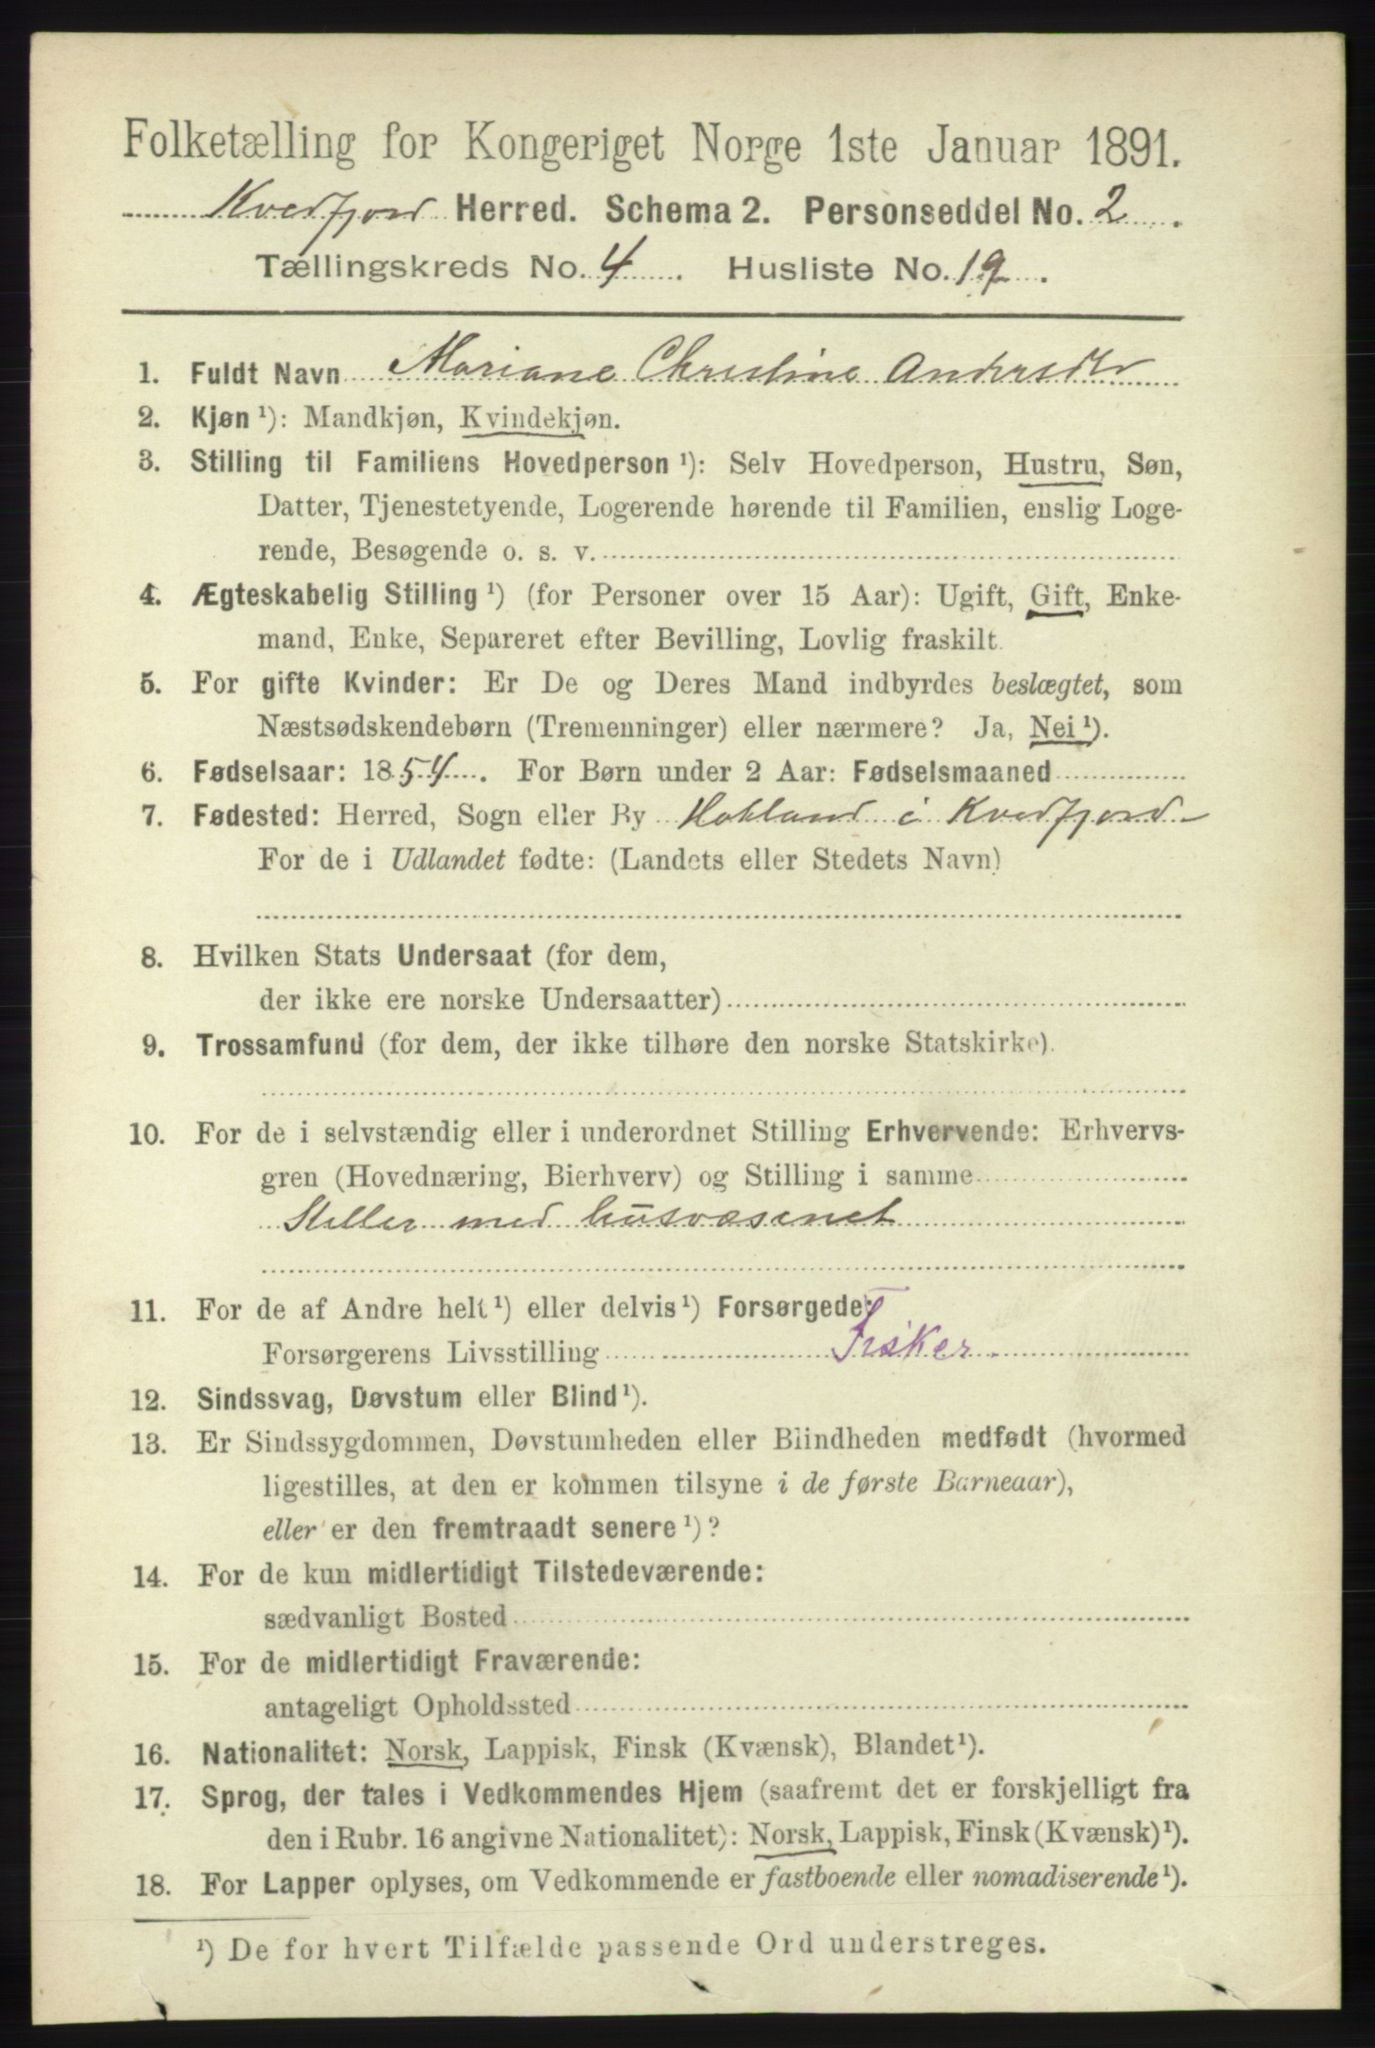 Folketælling for Kongeriget Norge 1ste Januar 1891.
Kvedfjord Herred. Schema 2. Personseddel No. 2.
Tællingskreds No. 4. Husliste No. 19.
1. Fuldt Navn Mariane Christine Andersdtr
2. Kjøn ¹): Mandkjøn, Kvindekjøn.
3. Stilling til Familiens Hovedperson ¹): Selv Hovedperson, Hustru, Søn,
Datter, Tjenestetyende, Logerende hørende til Familien, enslig Loge-
rende, Besøgende o. s. v.
4. Ægteskabelig Stilling ¹) (for Personer over 15 Aar): Ugift, Gift, Enke-
mand, Enke, Separeret efter Bevilling, Lovlig fraskilt.
5. For gifte Kvinder: Er De og Deres Mand indbyrdes beslægtet, som
Næstsødskendebørn (Tremenninger) eller nærmere? Ja, Nei ¹).
6. Fødselsaar: 1854. For Børn under 2 Aar: Fødselsmaaned
7. Fødested: Herred, Sogn eller By Hokland i Kvedfjord
For de i Udlandet fødte: (Landets eller Stedets Navn)
8. Hvilken Stats Undersaat (for dem,
der ikke ere norske Undersaatter)
9. Trossamfund (for dem, der ikke tilhøre den norske Statskirke).
10. For de i selvstændig eller i underordnet Stilling Erhvervende: Erhvervs-
gren (Hovednæring, Bierhverv) og Stilling i samme
Steller med husvæsenet
11. For de af Andre helt ¹) eller delvis ¹) Forsørgede:
Forsørgerens Livsstilling Fisker.
12. Sindssvag, Døvstum eller Blind ¹).
13. Er Sindssygdommen, Døvstumheden eller Blindheden medfødt (hvormed
ligestilles, at den er kommen tilsyne i de første Barneaar),
eller er den fremtraadt senere ¹)?
14. For de kun midlertidigt Tilstedeværende:
sædvanligt Bosted
15. For de midlertidigt Fraværende:
antageligt Opholdssted
16. Nationalitet: Norsk, Lappisk, Finsk (Kvænsk), Blandet ¹).
17. Sprog, der tales i Vedkommendes Hjem (saafremt det er forskjelligt fra
den i Rubr. 16 angivne Nationalitet): Norsk, Lappisk, Finsk (Kvænsk) ¹).
18. For Lapper oplyses, om Vedkommende er fastboende eller nomadiserende ¹).
¹) De for hvert Tilfælde passende Ord understreges.